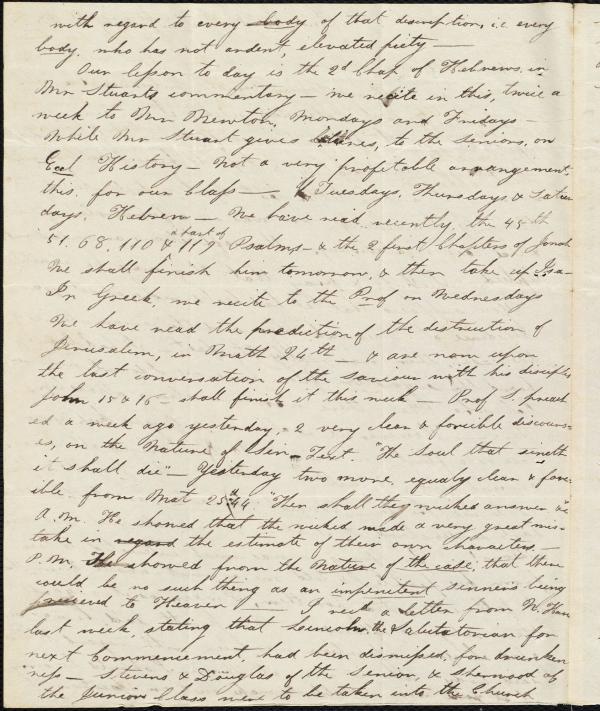 with regard to every body of that description, i.e. every
body, who has not ardent, elevated piety —
Our lesson to day is the 2d Chap. of Hebrews in
Mr Stuarts commentary — we recite in this, twice a
week to Mr Newton, Mondays and Fridays —
While Mr Stuart gives to the Seniors, on
Eccl History — Not a very profitable arrangement,
this, for our Class — Tuesdays, Thursdays & Satur
days, Hebrew — We have read recently, the 45th
51, 68, 110 & a part of 119 Psalms — & the 2 first Chapters of Jonah
We shall finish him tomorrow, & then take up Isa—
In Greek, we recite to the Prof on Wednesdays
We have read the prediction of the distruction of
Jerusalem, in Math 24th — & are now upon
the last conversation of the Saviour with his disciples
John 15 & 16 — shall finish it this week — Prof S. preach
ed a week ago yesterday, 2 very clear & forcible discours
es, on the Nature of Sin — Text. "The Soul that sineth
it shall die" — Yesterday two more, equaly clear & forc
ible from Mat 25th 44 "Then shall they wicked answer &c
A.M. He showed that the wicked made a very great mis-
take in regard the estimate of their own characters —
P.M. He showed from the Nature of the case, that there
could be no such thing as an impenitent sinners being
received to Heaven — I recd a letter from N. Ham
last week, stating that Lincoln, the Salutatorian for
next Commencement, had been dismissed, for drunken
ness — Stevens & Douglas of the Senior, & Sherwood of
the Junior Class were to be taken into the Church